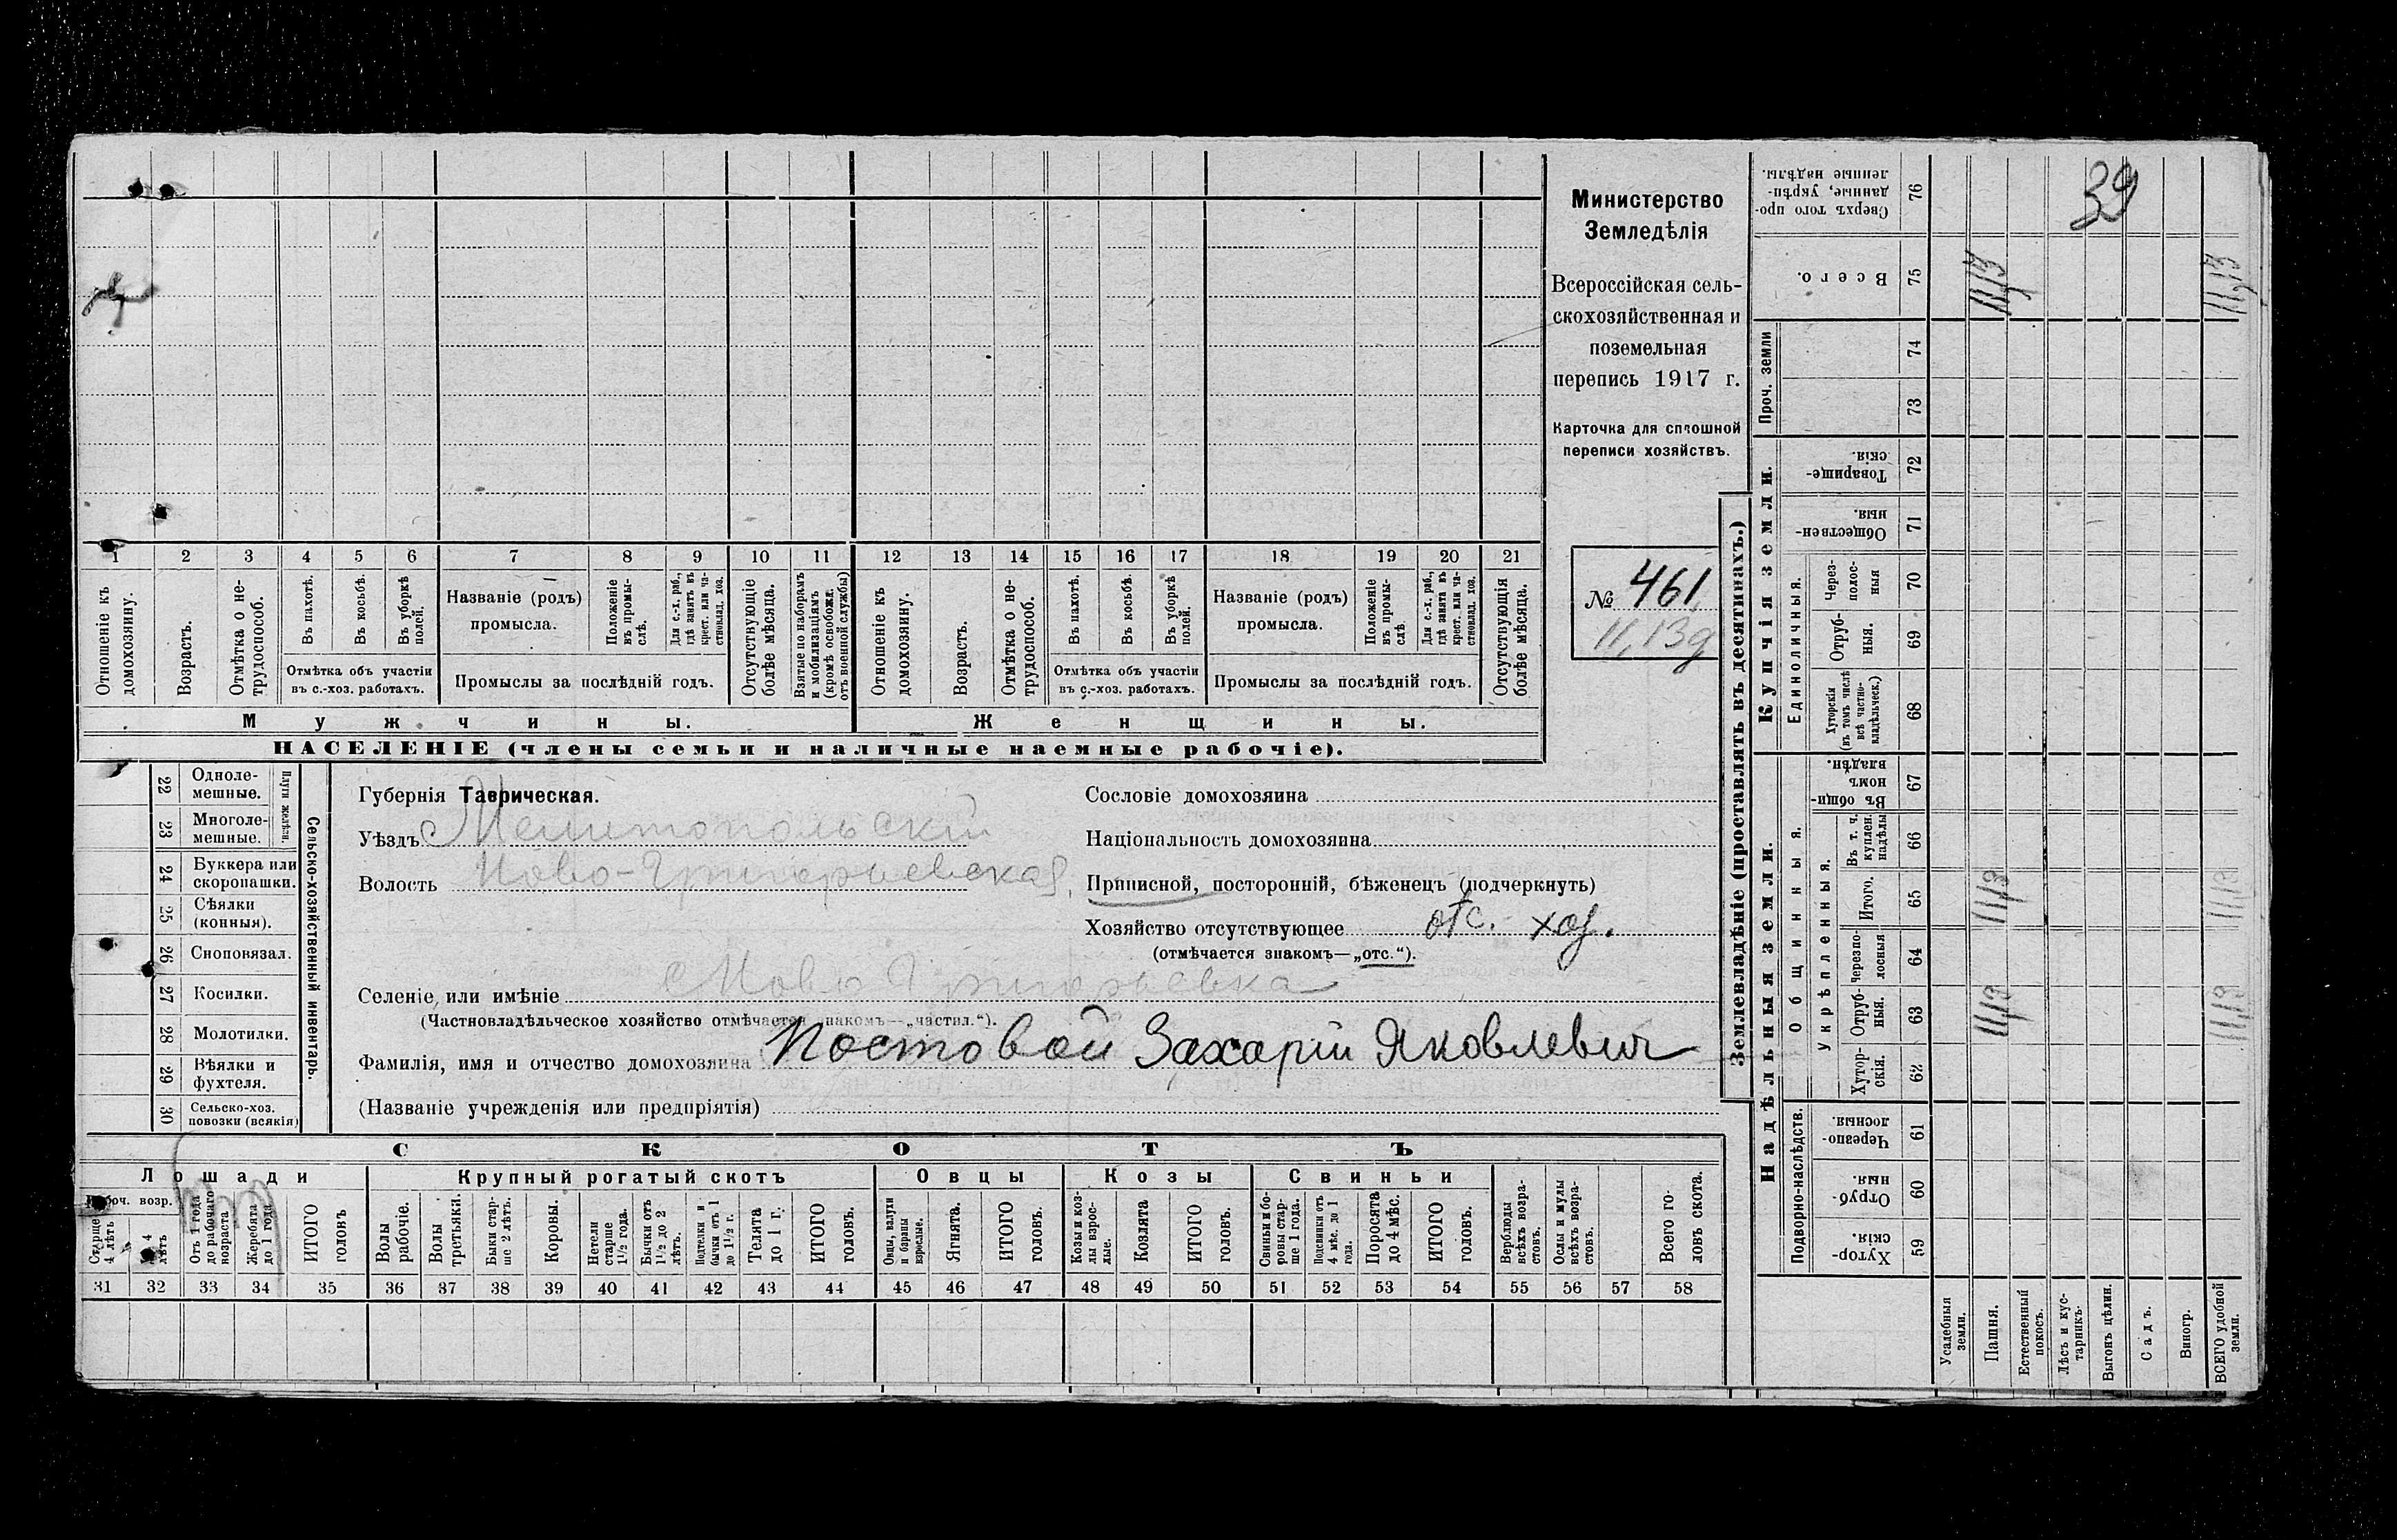 39
Министерство
Земледѣлія
Всероссійская сель-
скохозяйственная и
поземельная
перепись 1917 г.
Карточка для сплошной
переписи хозяйствъ.
№ 461
11,13 д
1 2 3 4 5 6 7 8 9 10 11 12 13 14 15 16 17 18 19 20 21
Отношеніе къ домохозяину.
Возрастъ.
Отмѣтка о не-трудоспособ.
Въ пахотѣ.
Въ косьбѣ.
Въ уборкѣ полей.
Отмѣтка объ участіи
въ с.-хоз. работахъ.
Названіе (родъ)
промысла.
Положеніе въ промы-слѣ.
Для с.-х. раб., гдѣ занятъ въ крест. или ча-стновлад. хоз.
Промыслы за послѣдній годъ.
Отсутствующіе болѣе мѣсяца.
Взятые по наборамъ и мобилизаціямъ (кромѣ освобожд. отъ военной службы)
Отношеніе къ домохозяину.
Возрастъ.
Отмѣтка о не-трудоспособ.
Въ пахотѣ.
Въ косьбѣ.
Въ уборкѣ полей.
Отмѣтка объ участіи
въ с.-хоз. работахъ.
Названіе (родъ)
промысла.
Положеніе въ промы-слѣ
Для с.-х. раб., гдѣ занята въ крест. или ча-стновлад. хоз.
Промыслы за послѣдній годъ.
Отсутствующія болѣе мѣсяца.
Мужчины.
Женщины.
НАСЕЛЕНІЕ (члены семьи и наличные наемные рабочіе).
Сельско-хозяйственный инвентарь.
Плуги желѣзн.
22 Одноле-мешные.
23 Многоле-мешные.
24 Буккера или скоропашки.
25 Сѣялки (конныя).
26 Сноповязал.
27 Косилки.
28 Молотилки.
29 Вѣялки и фухтеля.
30 Сельско-хоз. повозки (всякія)
Губернія Таврическая.
Уѣздъ Мелитопольскій
Волость Ново-Григорьевская
Селеніе или имѣніе Ново Григорьевка
(Частновладѣльческое хозяйство отмѣчается знакомъ—„частвл.“).
Фамилія, имя и отчество домохозяина Постовой Захарій Яковлевич
(Названіе учрежденія или предпріятія)
Сословіе домохозяина
Національность домохозяина
Приписной, посторонній, бѣженецъ (подчеркнуть)
Хозяйство отсутствующее отс. хоз.
(отмѣчается знакомъ—„отс.“).
СКОТЪ
Лошади
Крупный рогатый скотъ
Овцы
Козы
Свиньи
Рабоч. возр.
Старше 4 лѣтъ
4 лѣтъ
Отъ 1 года до рабочаго возраста
Жеребята до 1 года
ИТОГО головъ
Волы рабочіе.
Волы третьяки.
Быки стар-ше 2 лѣтъ.
Коровы.
Нетели старше 1½ года.
Бычки отъ 1½ до 2 лѣтъ.
Подтелки и бычки отъ 1 до 1½ г.
Телята до 1 г.
ИТОГО головъ.
Овцы, валухи и бараны взрослые.
Ягнята.
ИТОГО головъ.
Козы и коз-лы взрос-лые.
Козлята
ИТОГО головъ.
Свиньи и бо-ровы стар-ше 1 года.
Подсвинки отъ 4 мѣс. до 1 года.
Поросята до 4 мѣс.
ИТОГО головъ.
Верблюды всѣхъ возра-стовъ.
Ослы и мулы всѣхъ возра-стовъ.
Всего го-ловъ скота.
31 32 33 34 35 36 37 38 39 40 41 42 43 44 45 46 47 48 49 50 51 52 53 54 55 56 57 58
Землевладѣніе (проставлять въ десятинахъ.)
Надѣльныя земли.
Купчія земли.
Проч. земли
Подворно-наслѣдств.
Общинныя.
Укрѣпленныя.
Единоличныя.
59 Хутор-скія.
60 Отруб-ныя.
61 Черезпо-лосныя.
62 Хутор-скія.
63 Отруб-ныя.
64 Черезпо-лосныя
65 Итого.
66 Въ т. ч. куплен. надѣлы
67 Въ общи-номъ владѣн.
68 Хуторскія (въ томъ числѣ всѣ частно-владѣльческ.)
69 Отруб-ныя.
70 Через-полос-ныя
71 Обществен-ныя.
72 Товарище-скія.
73
74
75 Всего.
76 Сверхъ того про-данные, укрѣп-ленные надѣлы.
Усадебныя земли.
Пашня. 11,13 11,13 11,13
Естественный покосъ.
Лѣсъ и кус-тарникъ.
Выгонъ цѣлин.
Садъ.
Виногр.
ВСЕГО удобной земли. 11,13 11,13 11,13